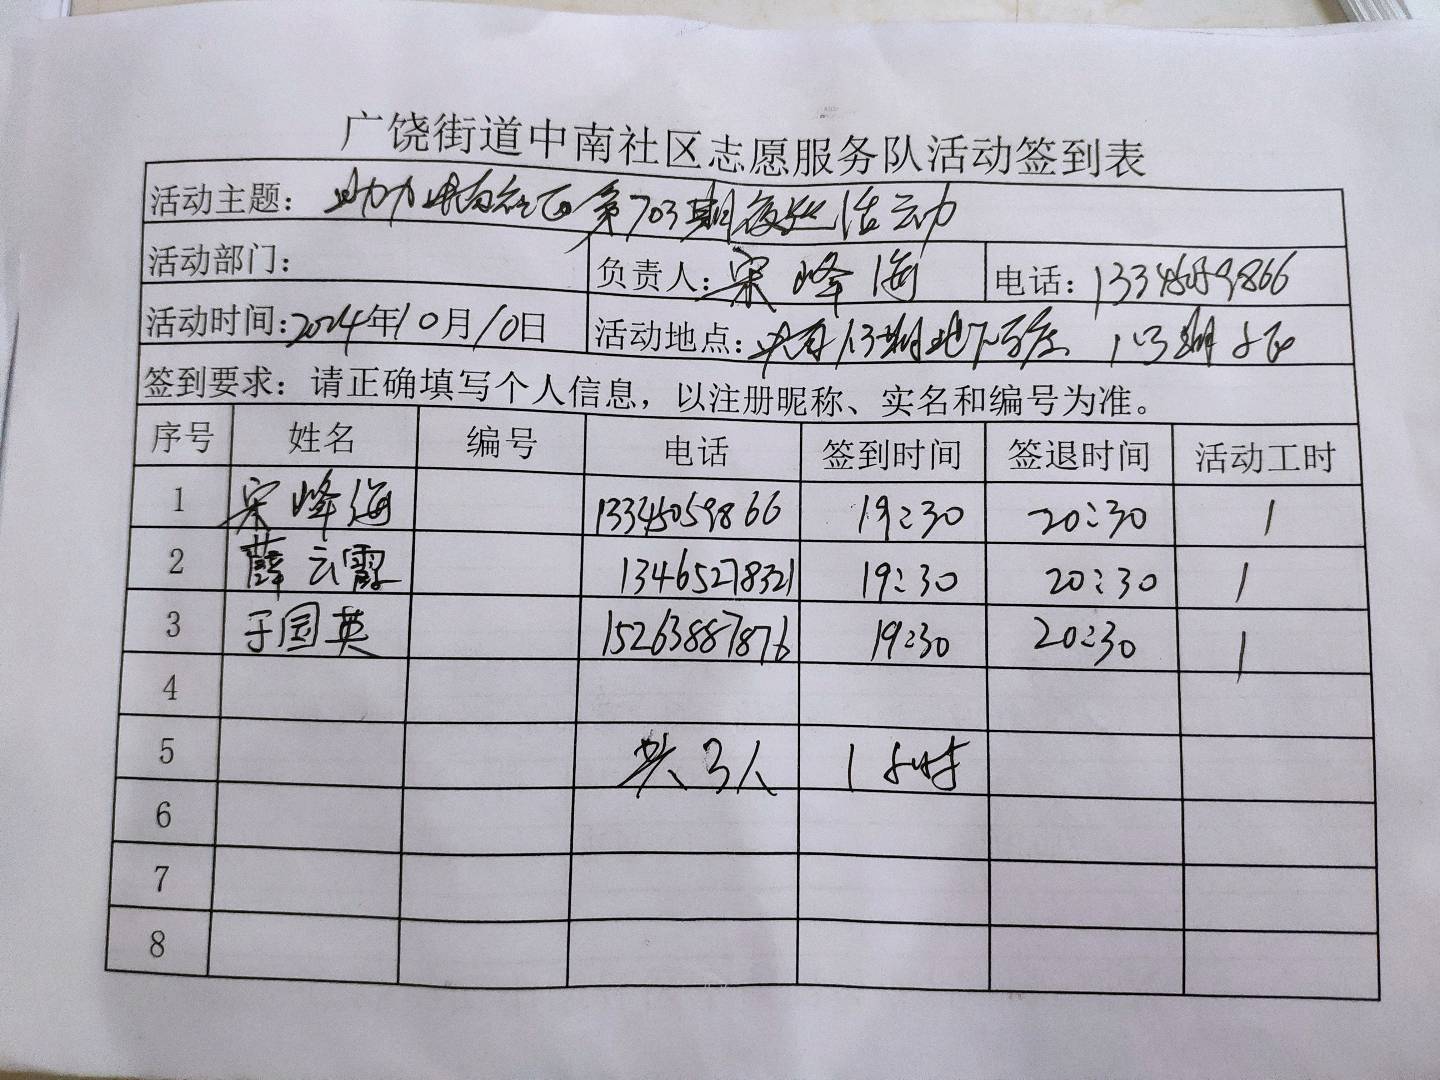 广饶街道中南社区志愿服务队活动签到表
活动主题: 助力中南社区第703期夜巡活动
活动部门: 负责人: 宋峰海 电话: 13345059866
活动时间: 2024年10月10日 活动地点: 中南1.3期地下车库 1.3期小区
签到要求: 请正确填写个人信息, 以注册昵称、实名和编号为准。
序号 姓名 编号 电话 签到时间 签退时间 活动工时
1 宋峰海 13345059866 19:30 20:30 1
2 薛云霞 13465278321 19:30 20:30 1
3 于国英 15263887876 19:30 20:30 1
4
5 共3人 1小时
6
7
8